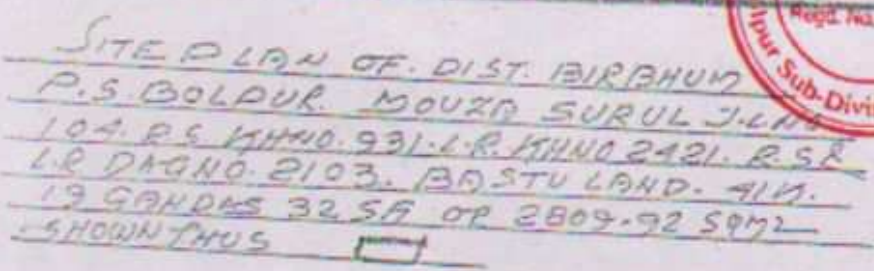 SITE PLAN OF. DIST. BIRBHUM
P.S. BOLPUR. MOUZA SURUL J.L NO
104. R.S KHNO. 931. L.R. KHNO 2421. R.S &
L.R DAGNO. 2103. BASTU LAND.
19 GANDAS 32 SFT OR 2809.92 SQM2
SHOWN THUS
Regd. No.
lpur Sub-Divi